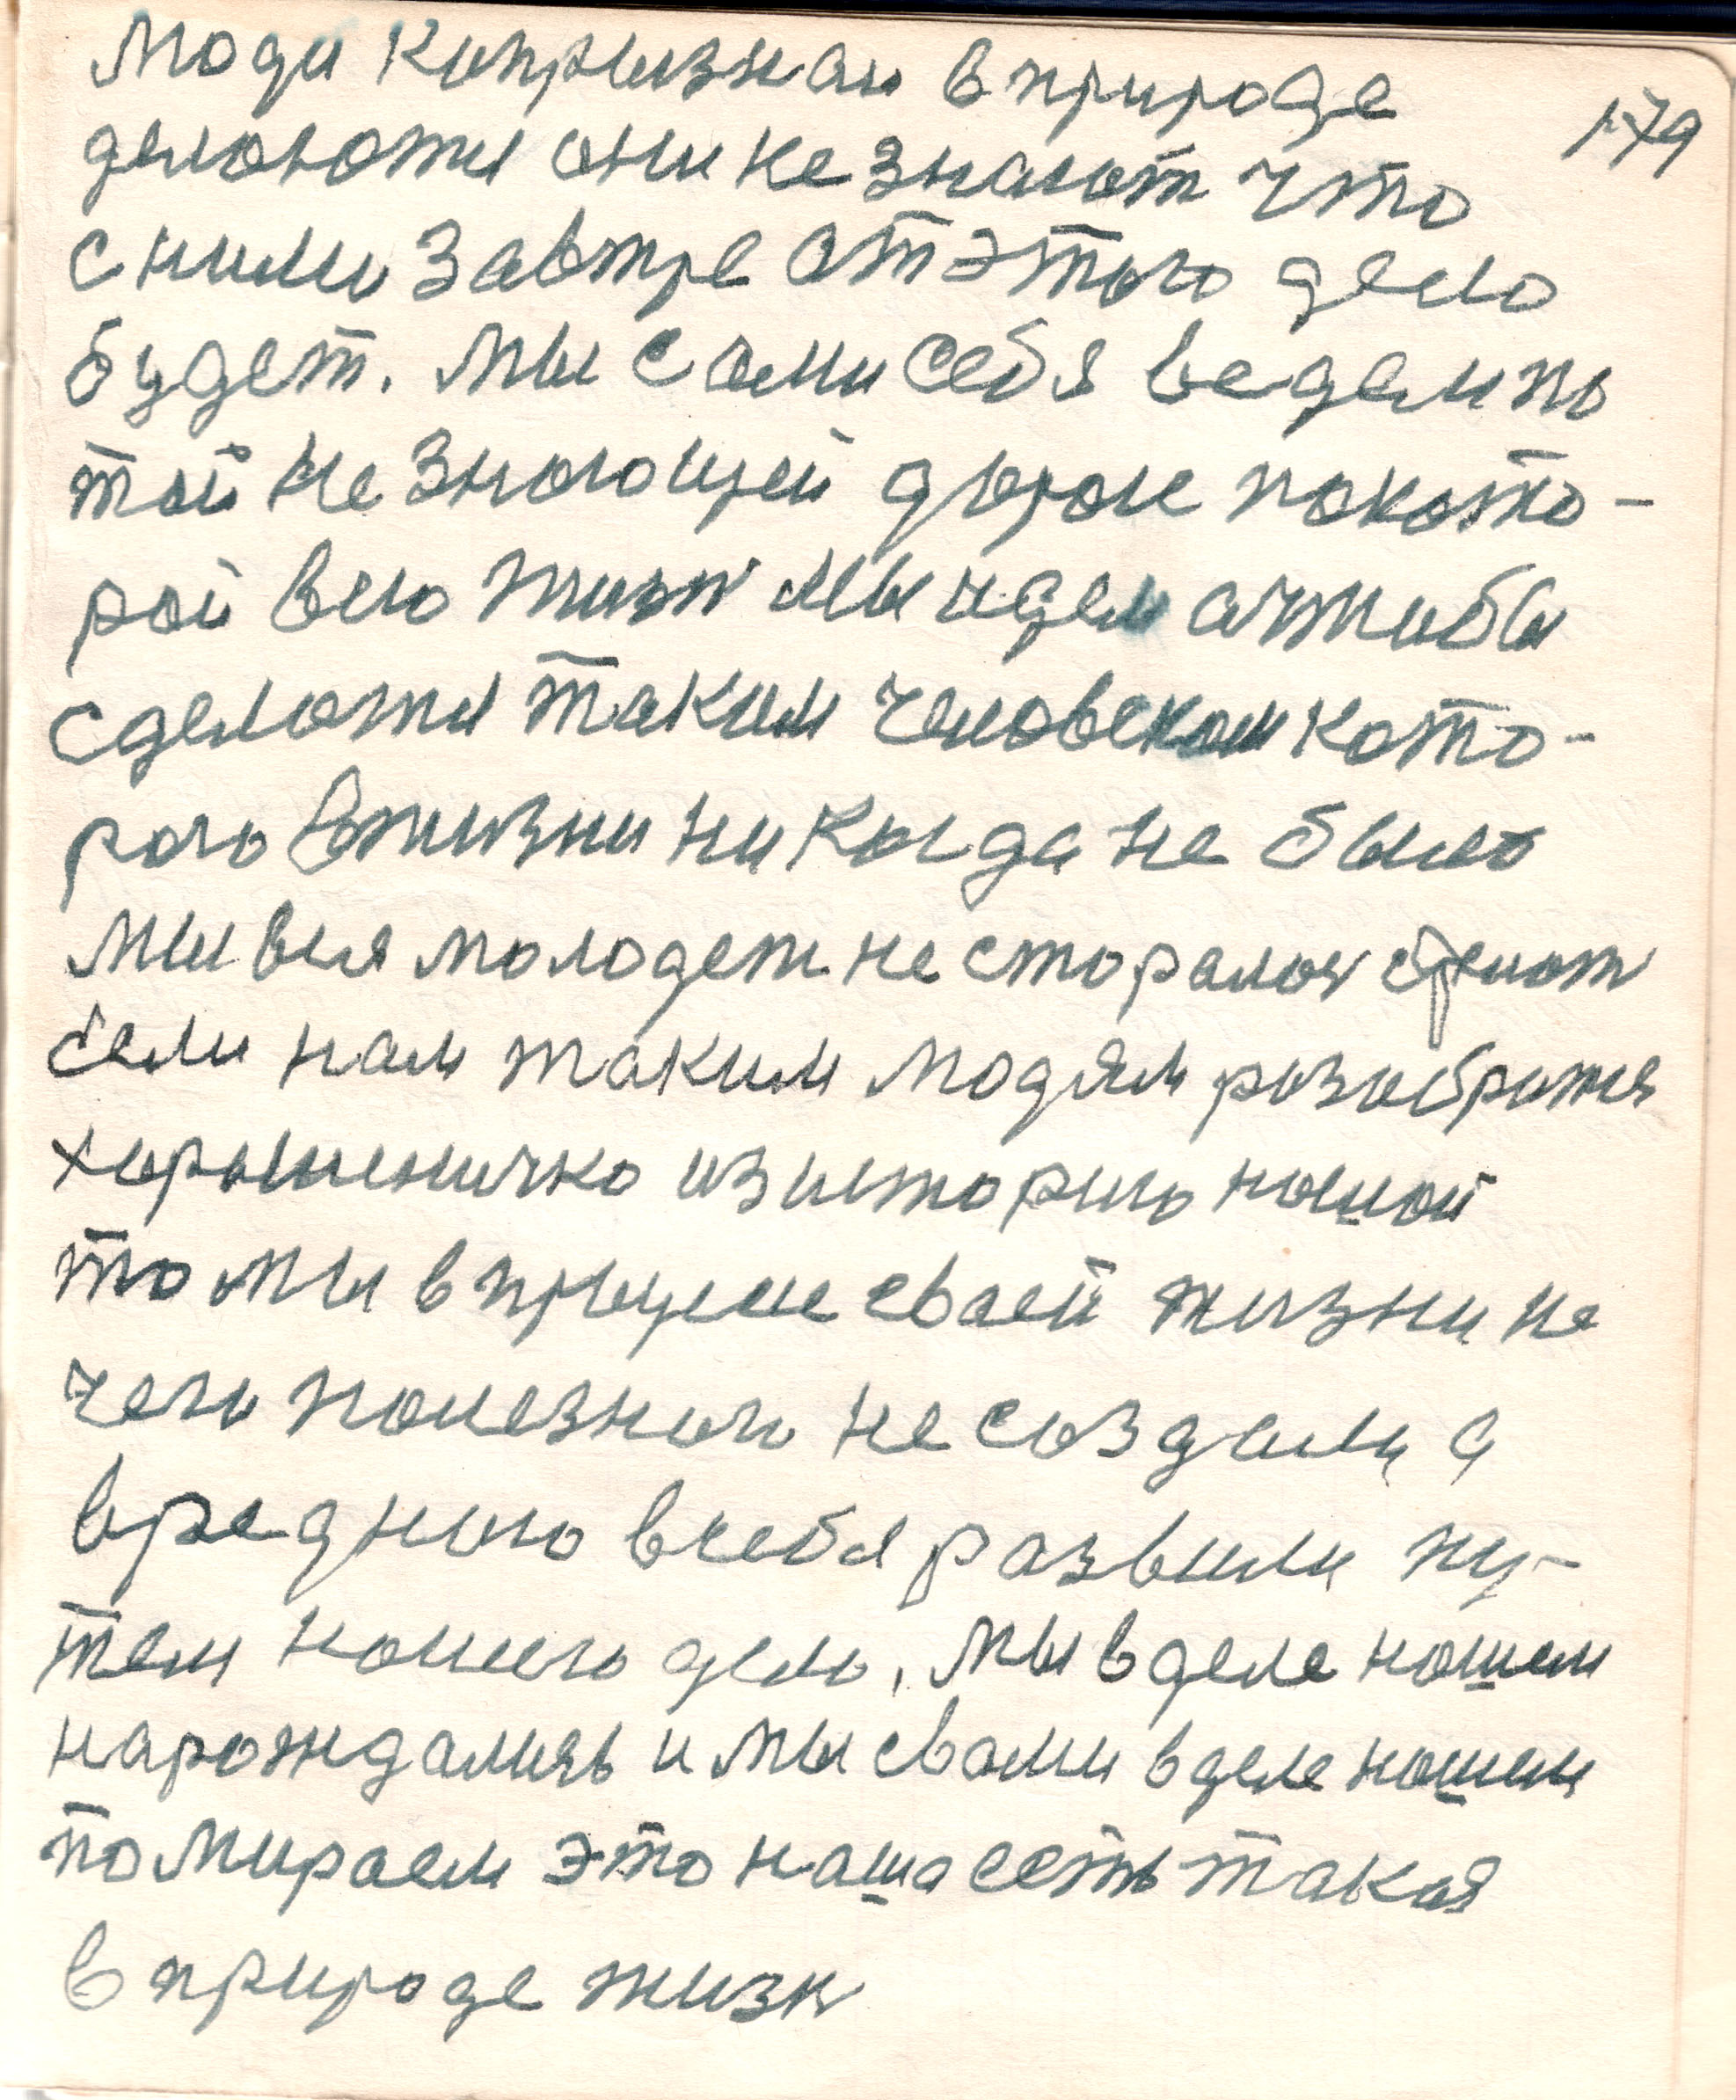 люди капризнаи в природе
179
деловоти они не знают что
с ними завтре от этого дело
будет. Мы сами себя ведем по
той не знающей дороге покото-
рой всю жизн мы идем а чтобы
сделоти таким человеком кото-
рого в жизни ни когда не было
мы вся молодеж не сторалос сделат
если нам таким людям розабратся
хорошеничко из историю нашой
то мы в процесе своей жизни не
чего полезного не создали а
вредного в себя развили пу-
тем нашего дело, мы в деле нашем
нарождались и мы свами в деле нашем
помираем это наша есть такая
в природе жизн